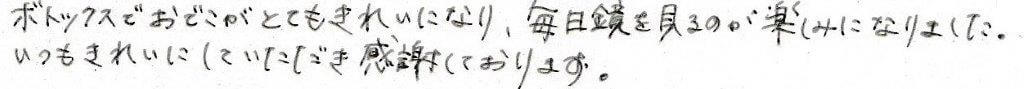 ボトックスでおでこがとてもきれいになり、毎日鏡を見るのが楽しみになりました。
いつもきれいにしていただき感謝しております。